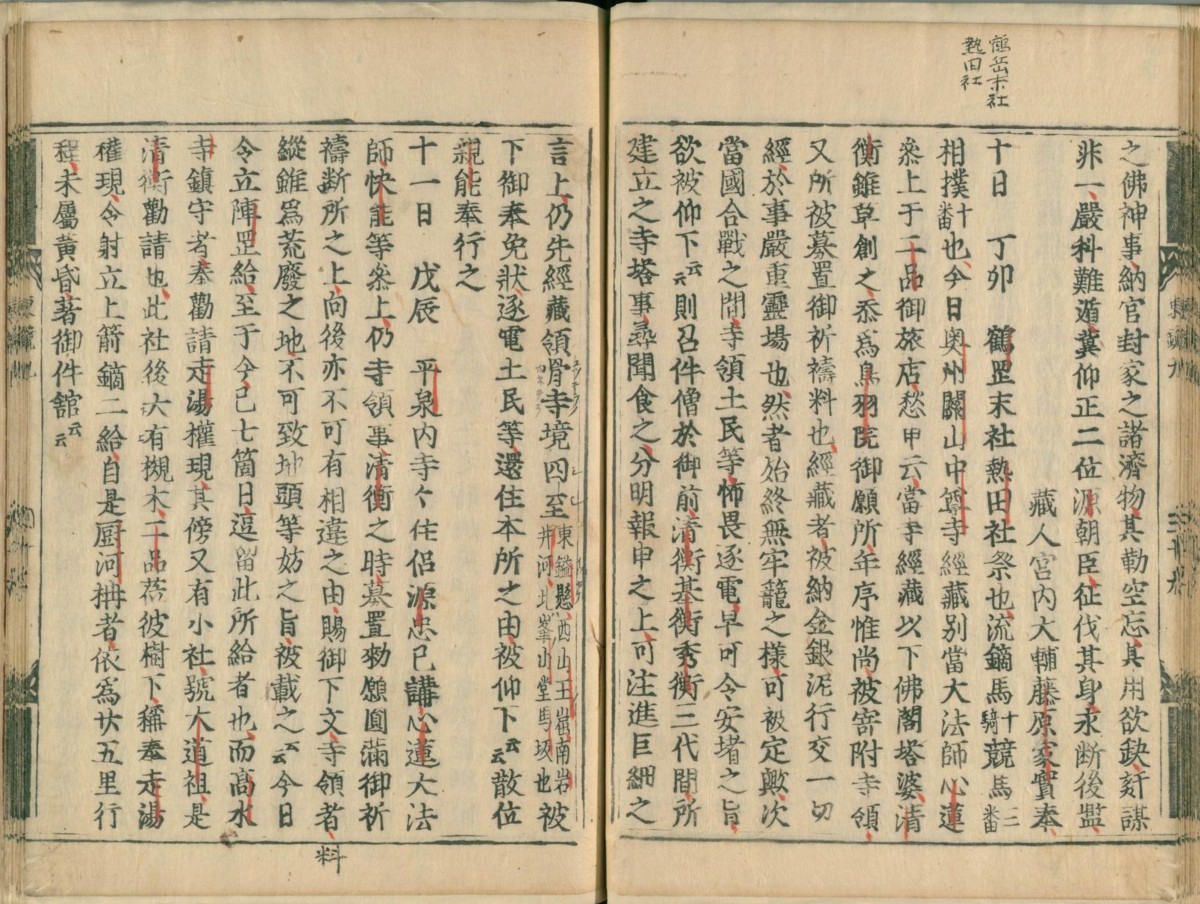 鶴岳末社
熱田社
之佛神事納官封家之諸濟物、其勤空忘、其用欲缺、姧謀
非一、嚴科難遁、冀仰正二位源朝臣、征伐其身、永断後濫、
藏人宮内大輔藤原家實奉、
十日　丁卯　鶴罡末社熱田社祭也、流鏑馬十騎競馬三番
相撲十番也、今日奥州關山中尊寺經藏別當大法師心蓮
叅上于二品御旅店、愁申云、當寺經藏以下佛閣塔婆、清
衡雖草創之、忝爲鳥羽院御願所、年序惟尚、被寄附寺領、
又所被募置御祈禱料也、經藏者、被納金銀泥行交一切
經、於事嚴重靈場也、然者始終無牢籠之様、可被定歟、次
當國合戰之間、寺領土民等、怖畏逐電、早可令安堵之旨、
欲被仰下云云則召件僧於御前、清衡基衡秀衡三代間所
建立之寺塔事、尋聞食之、分明報申之上、可注進巨細之
言上、仍先經藏領骨寺境四至東鎰懸、西山王崛南岩井河、北峯山堂馬坂也被
下御奉免狀逐電土民等還住本所之由、被仰下云云散位
親能奉行之
十一日　戊辰　平泉内寺々住侶源忠已講心蓮大法
師快能等叅上、仍寺領事清衡之時、募置勅願圓滿御祈
禱断所之上、向後亦不可有相違之由、賜御下文、寺領者、
縱雖爲荒廢之地、不可致地頭等妨之旨、被載之云云今日
令立陣罡給、至于今已七箇日、逗留此所給者也、而髙水
寺鎮守者奉勸請走湯權現、其傍又有小社、號大道祖、是
清衡勸請也、此社後大有槻木、二品莅彼樹下、稱奉走湯
權現、令射立上箭鏑二給、自是厨河栅者、依爲廿五里行
程、未屬黄昏著御件舘云云
料